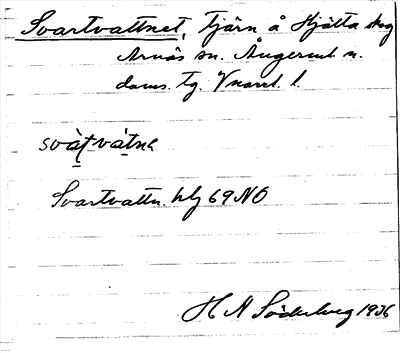 Svartvattnet, Tjärn å Hjälta skog
Arnäs sn. Ångerml n.
doms. tg. Vnorrl. l.
svàt̩vàtnə
Svartvattn. blg 69 NO
H N Söderberg 1936